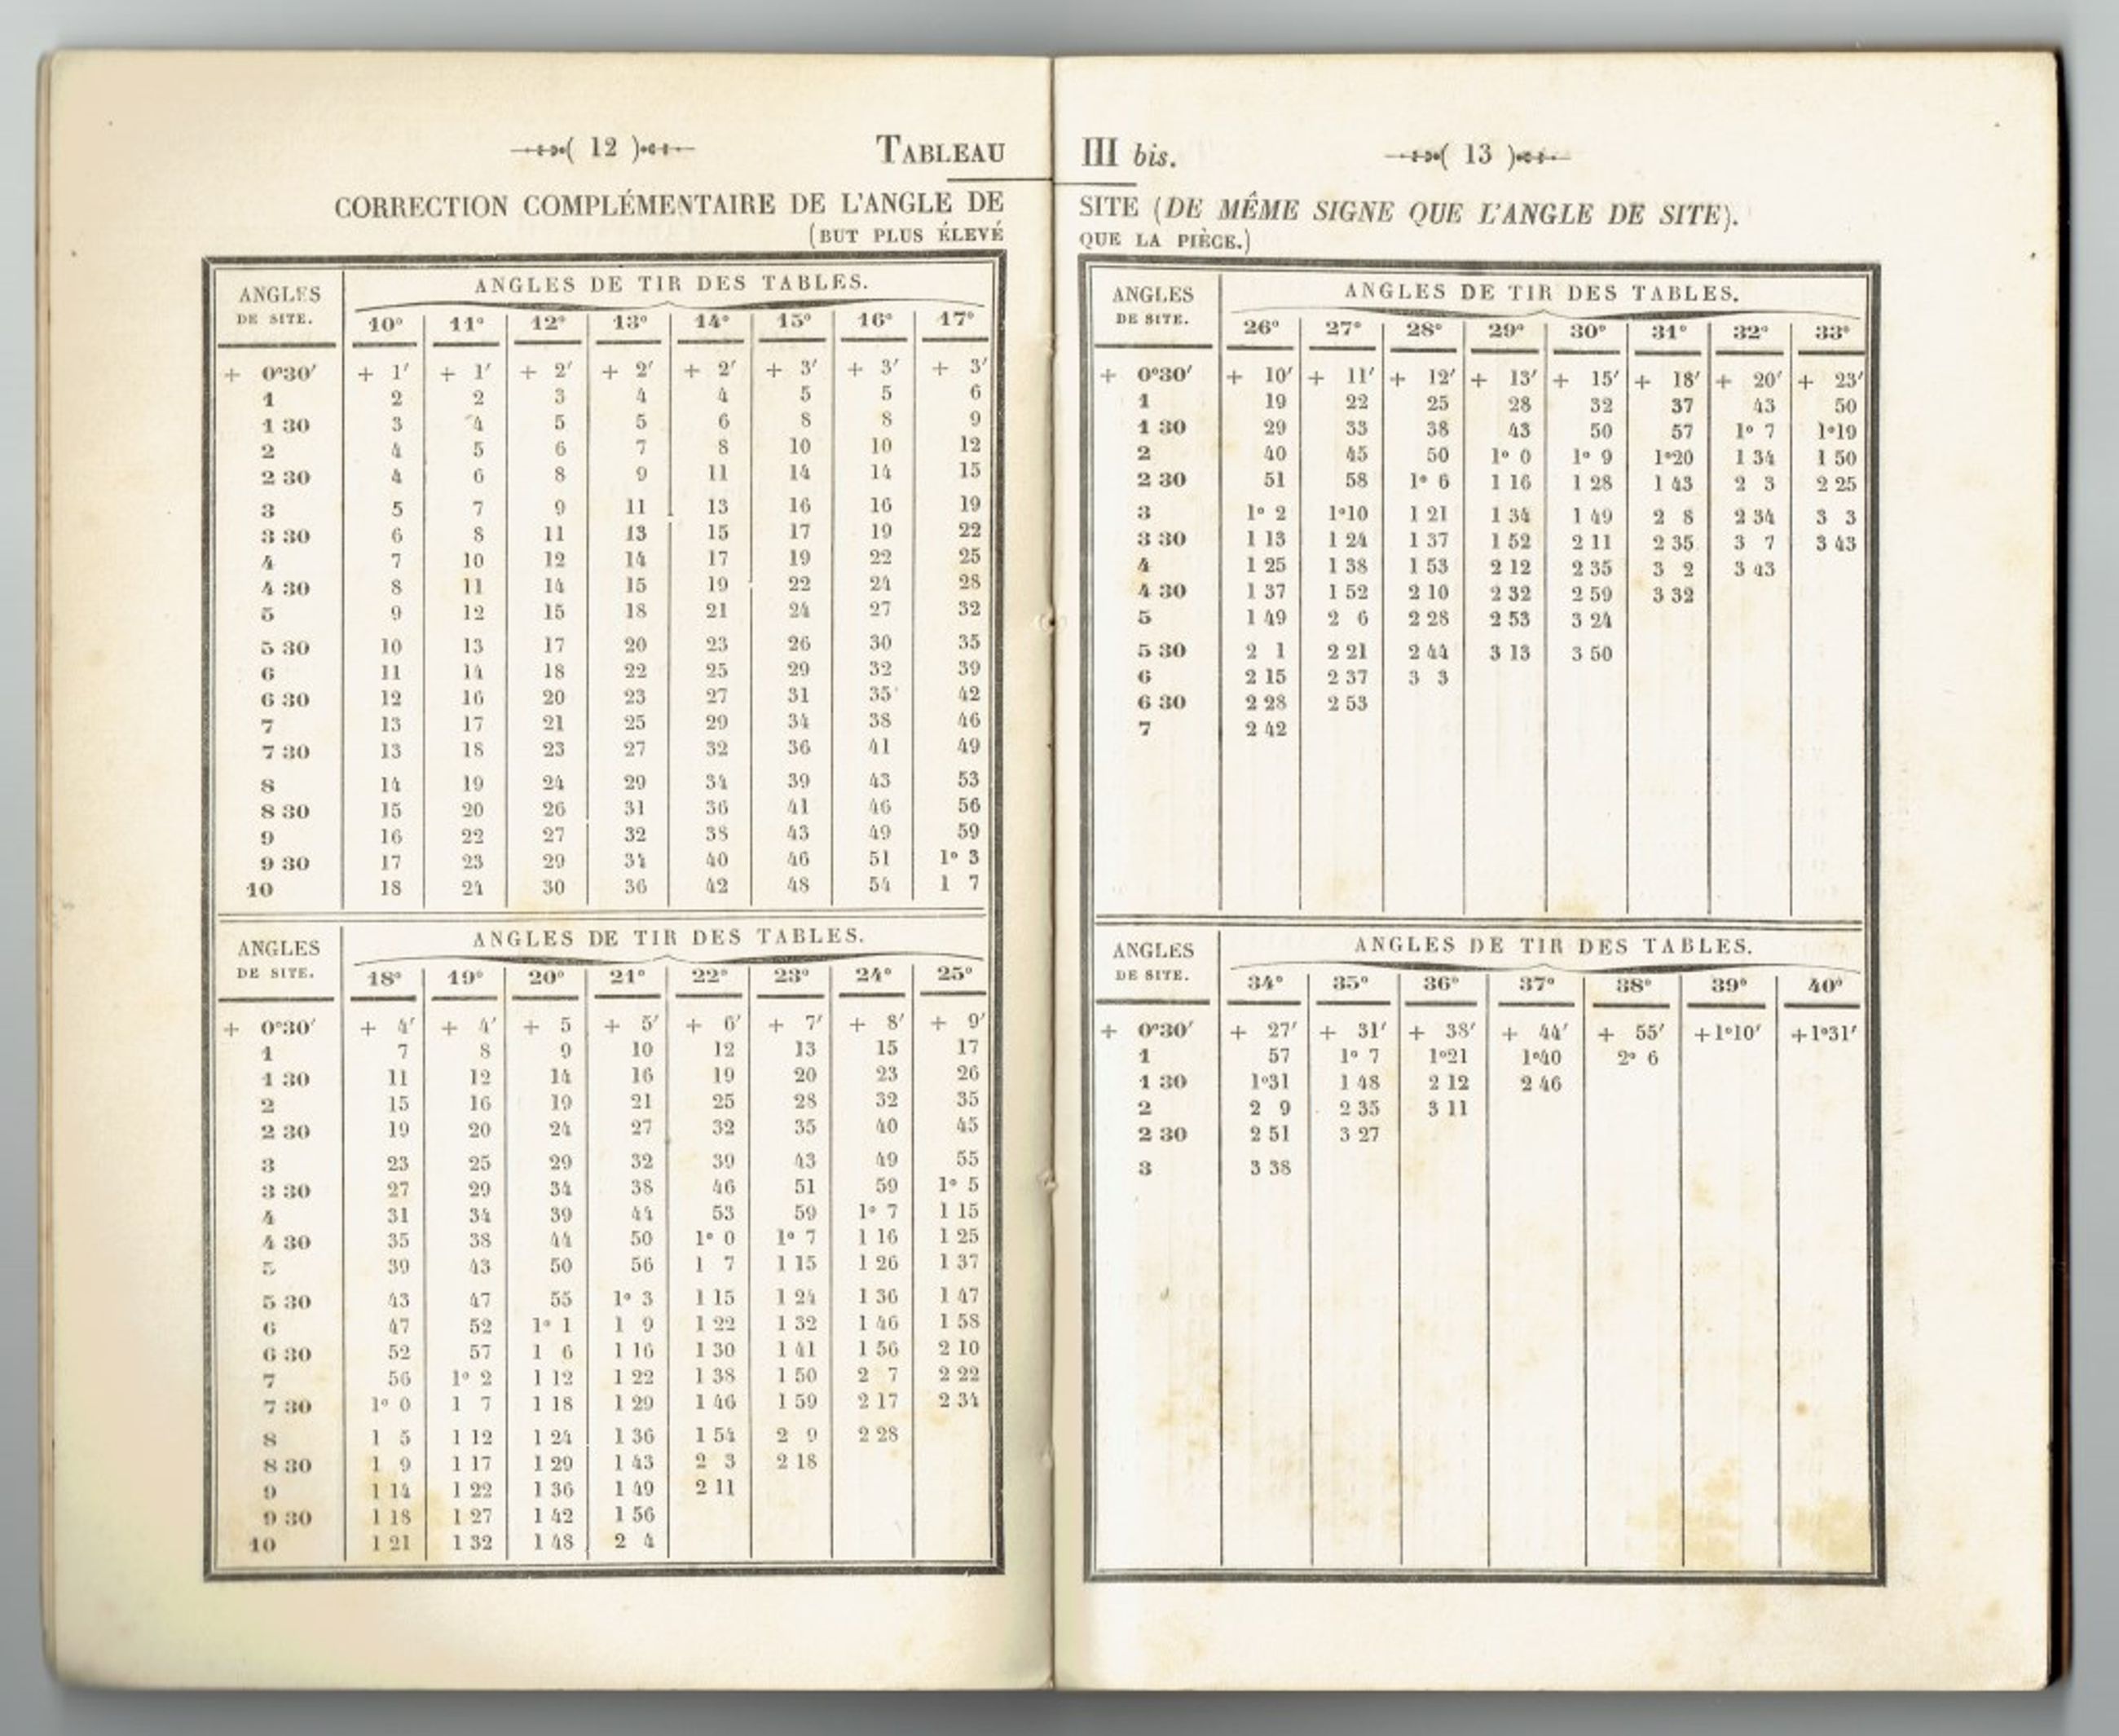 ( 12 ) TABLEAU
CORRECTION COMPLÉMENTAIRE DE L'ANGLE DE
(BUT PLUS ÉLEVÉ
ANGLES DE SITE. ANGLES DE TIR DES TABLES.
10° 11° 12° 13° 14° 15° 16° 17°
+ 0°30′ + 1′ + 1′ + 2′ + 2′ + 2′ + 3′ + 3′ + 3′
1 2 2 3 4 4 5 5 6
1 30 3 4 5 5 6 8 8 9
2 4 5 6 7 8 10 10 12
2 30 4 6 8 9 11 14 14 15
3 5 7 9 11 13 16 16 19
3 30 6 8 11 13 15 17 19 22
4 7 10 12 14 17 19 22 25
4 30 8 11 14 15 19 22 24 28
5 9 12 15 18 21 24 27 32
5 30 10 13 17 20 23 26 30 35
6 11 14 18 22 25 29 32 39
6 30 12 16 20 23 27 31 35 42
7 13 17 21 25 29 34 38 46
7 30 13 18 23 27 32 36 41 49
8 14 19 24 29 34 39 43 53
8 30 15 20 26 31 36 41 46 56
9 16 22 27 32 38 43 49 59
9 30 17 23 29 34 40 46 51 1° 3
10 18 24 30 36 42 48 54 1 7
ANGLES DE SITE. ANGLES DE TIR DES TABLES.
18° 19° 20° 21° 22° 23° 24° 25°
+ 0°30′ + 4′ + 4′ + 5 + 5′ + 6′ + 7′ + 8′ + 9′
1 7 8 9 10 12 13 15 17
1 30 11 12 14 16 19 20 23 26
2 15 16 19 21 25 28 32 35
2 30 19 20 24 27 32 35 40 45
3 23 25 29 32 39 43 49 55
3 30 27 29 34 38 46 51 59 1° 5
4 31 34 39 44 53 59 1° 7 1 15
4 30 35 38 44 50 1° 0 1° 7 1 16 1 25
5 39 43 50 56 1 7 1 15 1 26 1 37
5 30 43 47 55 1° 3 1 15 1 24 1 36 1 47
6 47 52 1° 1 1 9 1 22 1 32 1 46 1 58
6 30 52 57 1 6 1 16 1 30 1 41 1 56 2 10
7 56 1° 2 1 12 1 22 1 38 1 50 2 7 2 22
7 30 1° 0 1 7 1 18 1 29 1 46 1 59 2 17 2 34
8 1 5 1 12 1 24 1 36 1 54 2 9 2 28
8 30 1 9 1 17 1 29 1 43 2 3 2 18
9 1 14 1 22 1 36 1 49 2 11
9 30 1 18 1 27 1 42 1 56
10 1 21 1 32 1 48 2 4
III bis. ( 13 )
SITE (DE MÊME SIGNE QUE L'ANGLE DE SITE).
QUE LA PIÈCE.)
ANGLES DE SITE. ANGLES DE TIR DES TABLES.
26° 27° 28° 29° 30° 31° 32° 33°
+ 0°30′ + 10′ + 11′ + 12′ + 13′ + 15′ + 18′ + 20′ + 23′
1 19 22 25 28 32 37 43 50
1 30 29 33 38 43 50 57 1° 7 1°19
2 40 45 50 1° 0 1° 9 1°20 1 34 1 50
2 30 51 58 1° 6 1 16 1 28 1 43 2 3 2 25
3 1° 2 1°10 1 21 1 34 1 49 2 8 2 34 3 3
3 30 1 13 1 24 1 37 1 52 2 11 2 35 3 7 3 43
4 1 25 1 38 1 53 2 12 2 35 3 2 3 43
4 30 1 37 1 52 2 10 2 32 2 59 3 32
5 1 49 2 6 2 28 2 53 3 24
5 30 2 1 2 21 2 44 3 13 3 50
6 2 15 2 37 3 3
6 30 2 28 2 53
7 2 42
ANGLES DE SITE. ANGLES DE TIR DES TABLES.
34° 35° 36° 37° 38° 39° 40°
+ 0°30′ + 27′ + 31′ + 38′ + 44′ + 55′ +1°10′ +1°31′
1 57 1° 7 1°21 1°40 2° 6
1 30 1°31 1 48 2 12 2 46
2 2 9 2 35 3 11
2 30 2 51 3 27
3 3 38